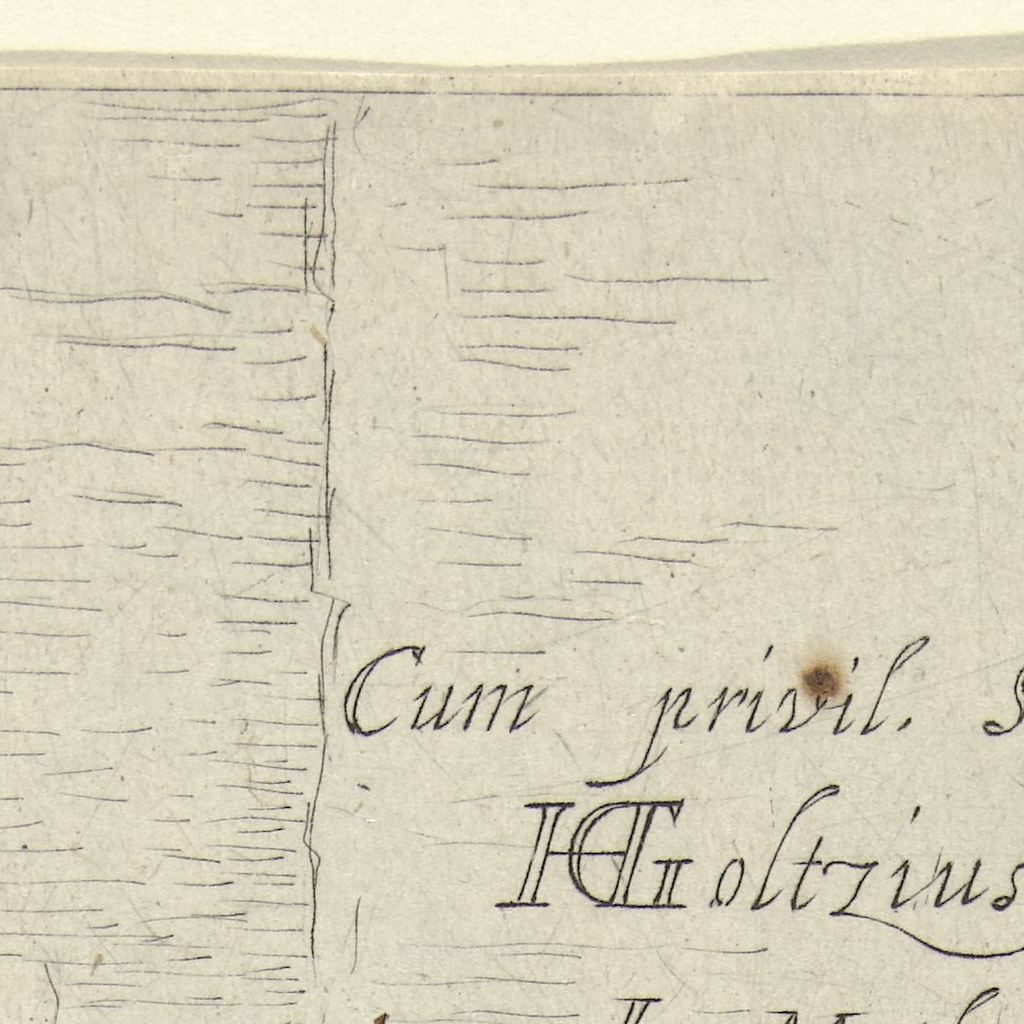 Cum privil. S
HGoltzius